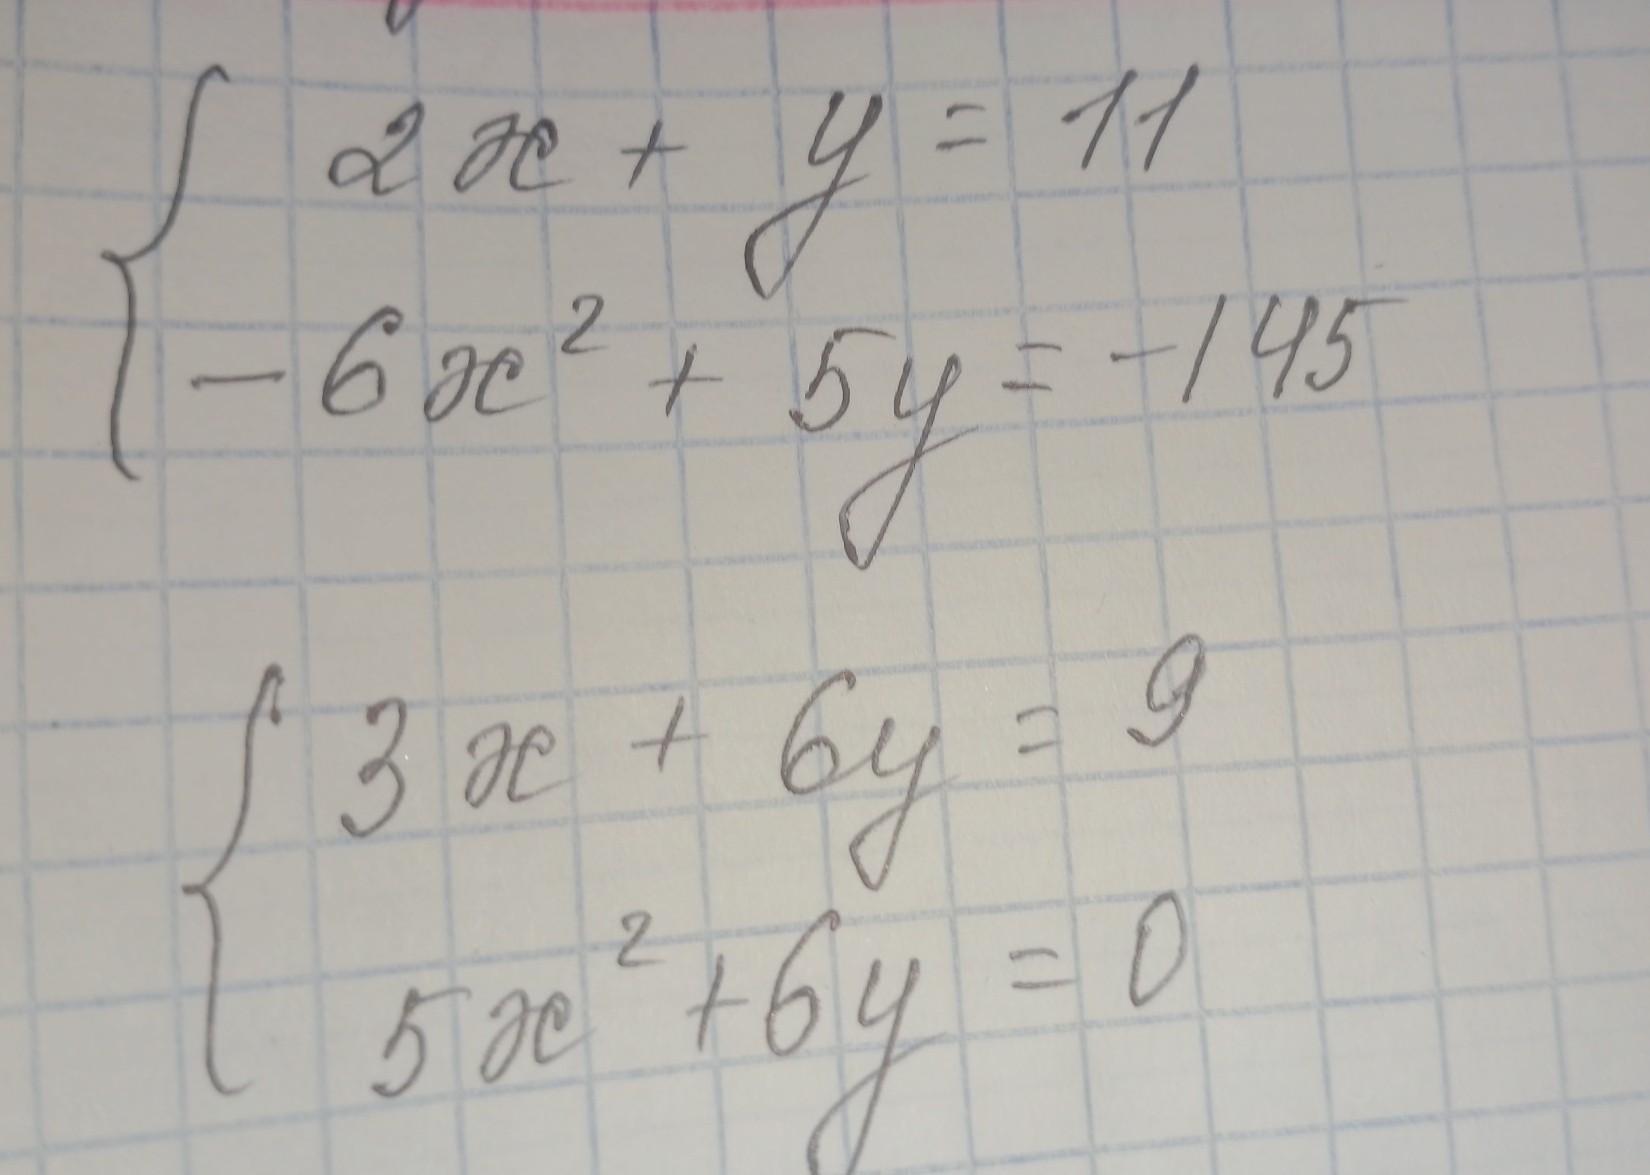 2x + y = 11
-6x² + 5y = -145
3x + 6y = 9
5x² + 6y = 0